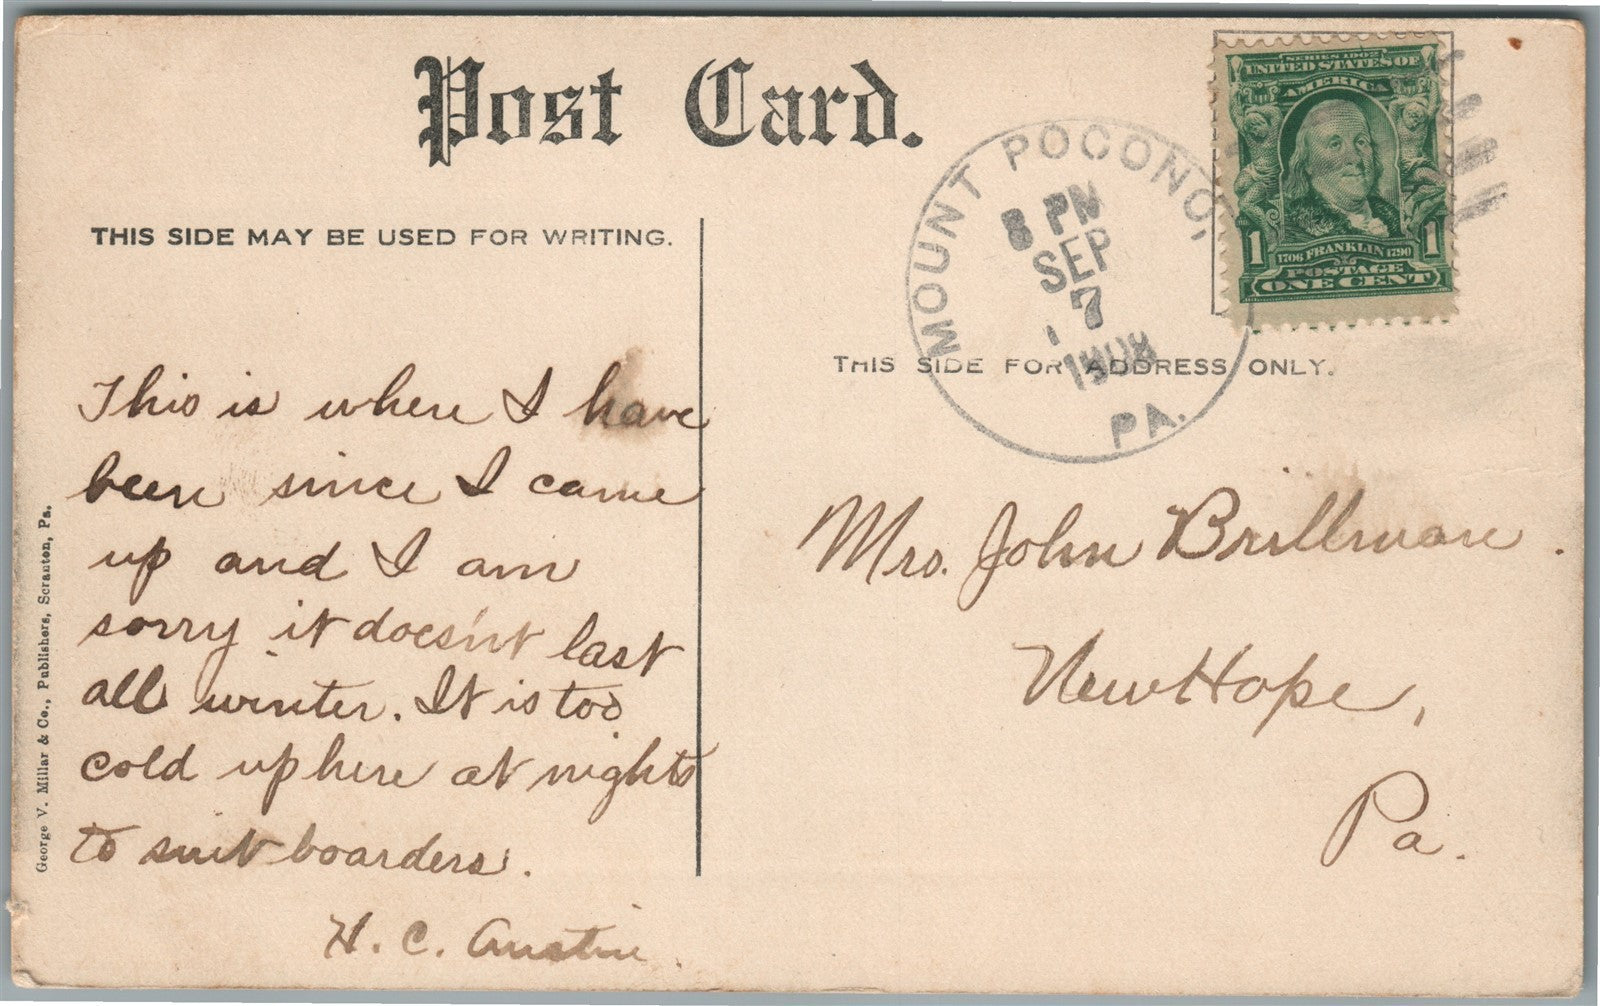 Post Card.
THIS SIDE MAY BE USED FOR WRITING.
This is where I have
been since I came
up and I am
sorry it doesn't last
all winter. It is too
cold up here at nights
to suit boarders.
H. C. Austin.
George V. Millar & Co., Publishers, Scranton, Pa.
MOUNT POCONO,
8 PM
SEP
7
1908
PA.
SERIES 1902
UNITED STATES OF
AMERICA
1 1706 FRANKLIN 1790 1
POSTAGE
ONE CENT
THIS SIDE FOR ADDRESS ONLY.
Mrs. John Brillman.
New Hope,
Pa.